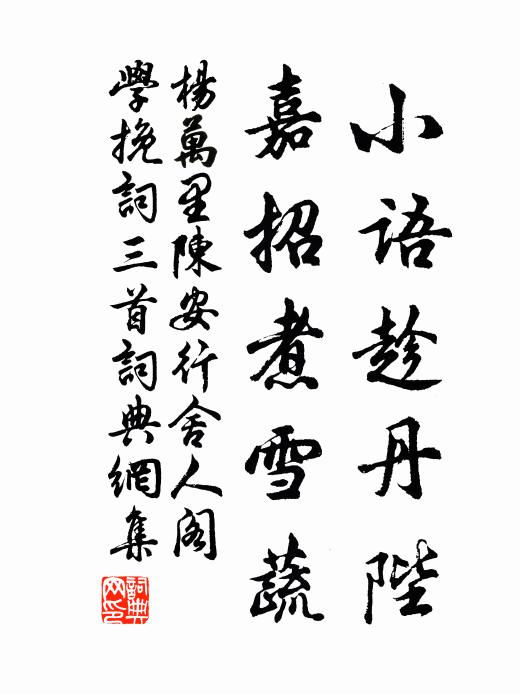 小語趁丹陛
嘉招煮雪蔬
楊萬里陳安行舍人閣
學挽詞三首詞典網集
詞典網印